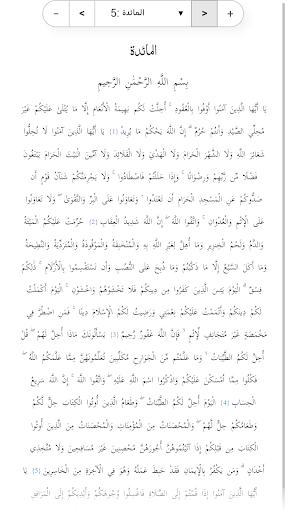 - < 5: المائدة ▼ > +
المائدة
بِسْمِ اللَّهِ الرَّحْمَٰنِ الرَّحِيمِ
يَا أَيُّهَا الَّذِينَ آمَنُوا أَوْفُوا بِالْعُقُودِ ۚ أُحِلَّتْ لَكُم بَهِيمَةُ الْأَنْعَامِ إِلَّا مَا يُتْلَىٰ عَلَيْكُمْ غَيْرَ
مُحِلِّي الصَّيْدِ وَأَنتُمْ حُرُمٌ ۗ إِنَّ اللَّهَ يَحْكُمُ مَا يُرِيدُ [1] يَا أَيُّهَا الَّذِينَ آمَنُوا لَا تُحِلُّوا
شَعَائِرَ اللَّهِ وَلَا الشَّهْرَ الْحَرَامَ وَلَا الْهَدْيَ وَلَا الْقَلَائِدَ وَلَا آمِّينَ الْبَيْتَ الْحَرَامَ يَبْتَغُونَ
فَضْلًا مِّن رَّبِّهِمْ وَرِضْوَانًا ۚ وَإِذَا حَلَلْتُمْ فَاصْطَادُوا ۚ وَلَا يَجْرِمَنَّكُمْ شَنَآنُ قَوْمٍ أَن
صَدُّوكُمْ عَنِ الْمَسْجِدِ الْحَرَامِ أَن تَعْتَدُوا ۘ وَتَعَاوَنُوا عَلَى الْبِرِّ وَالتَّقْوَىٰ ۖ وَلَا تَعَاوَنُوا
عَلَى الْإِثْمِ وَالْعُدْوَانِ ۚ وَاتَّقُوا اللَّهَ ۖ إِنَّ اللَّهَ شَدِيدُ الْعِقَابِ [2] حُرِّمَتْ عَلَيْكُمُ الْمَيْتَةُ
وَالدَّمُ وَلَحْمُ الْخِنزِيرِ وَمَا أُهِلَّ لِغَيْرِ اللَّهِ بِهِ وَالْمُنْخَنِقَةُ وَالْمَوْقُوذَةُ وَالْمُتَرَدِّيَةُ وَالنَّطِيحَةُ
وَمَا أَكَلَ السَّبُعُ إِلَّا مَا ذَكَّيْتُمْ وَمَا ذُبِحَ عَلَى النُّصُبِ وَأَن تَسْتَقْسِمُوا بِالْأَزْلَامِ ۚ ذَٰلِكُمْ
فِسْقٌ ۗ الْيَوْمَ يَئِسَ الَّذِينَ كَفَرُوا مِن دِينِكُمْ فَلَا تَخْشَوْهُمْ وَاخْشَوْنِ ۚ الْيَوْمَ أَكْمَلْتُ
لَكُمْ دِينَكُمْ وَأَتْمَمْتُ عَلَيْكُمْ نِعْمَتِي وَرَضِيتُ لَكُمُ الْإِسْلَامَ دِينًا ۚ فَمَنِ اضْطُرَّ فِي
مَخْمَصَةٍ غَيْرَ مُتَجَانِفٍ لِّإِثْمٍ ۙ فَإِنَّ اللَّهَ غَفُورٌ رَّحِيمٌ [3] يَسْأَلُونَكَ مَاذَا أُحِلَّ لَهُمْ ۖ قُلْ
أُحِلَّ لَكُمُ الطَّيِّبَاتُ ۙ وَمَا عَلَّمْتُم مِّنَ الْجَوَارِحِ مُكَلِّبِينَ تُعَلِّمُونَهُنَّ مِمَّا عَلَّمَكُمُ اللَّهُ ۖ
فَكُلُوا مِمَّا أَمْسَكْنَ عَلَيْكُمْ وَاذْكُرُوا اسْمَ اللَّهِ عَلَيْهِ ۖ وَاتَّقُوا اللَّهَ ۚ إِنَّ اللَّهَ سَرِيعُ
الْحِسَابِ [4] الْيَوْمَ أُحِلَّ لَكُمُ الطَّيِّبَاتُ ۖ وَطَعَامُ الَّذِينَ أُوتُوا الْكِتَابَ حِلٌّ لَّكُمْ
وَطَعَامُكُمْ حِلٌّ لَّهُمْ ۖ وَالْمُحْصَنَاتُ مِنَ الْمُؤْمِنَاتِ وَالْمُحْصَنَاتُ مِنَ الَّذِينَ أُوتُوا
الْكِتَابَ مِن قَبْلِكُمْ إِذَا آتَيْتُمُوهُنَّ أُجُورَهُنَّ مُحْصِنِينَ غَيْرَ مُسَافِحِينَ وَلَا مُتَّخِذِي
أَخْدَانٍ ۗ وَمَن يَكْفُرْ بِالْإِيمَانِ فَقَدْ حَبِطَ عَمَلُهُ وَهُوَ فِي الْآخِرَةِ مِنَ الْخَاسِرِينَ [5] يَا
أَيُّهَا الَّذِينَ آمَنُوا إِذَا قُمْتُمْ إِلَى الصَّلَاةِ فَاغْسِلُوا وُجُوهَكُمْ وَأَيْدِيَكُمْ إِلَى الْمَرَافِقِ